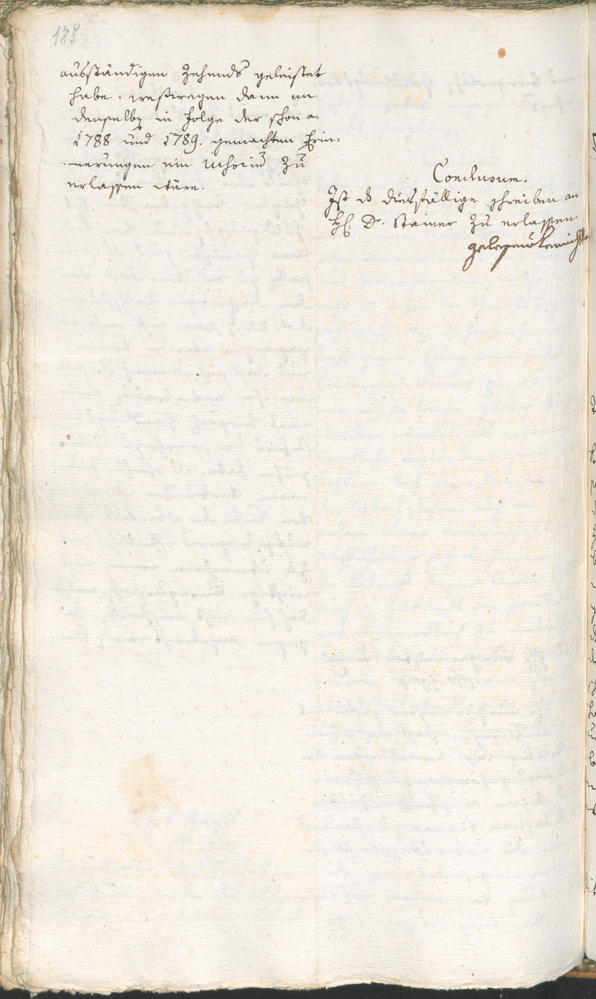 185
ausständigen Zehends geleistet
habe. weßwegen dann an
denselben in Folge der schon a.
1788 und 1789. gemachten Erin-
nerungen ein zu
erlassen wäre.
Conclusum.
Ist das diesfällige schreiben an
H. Dr. Stainer zu erlassen.